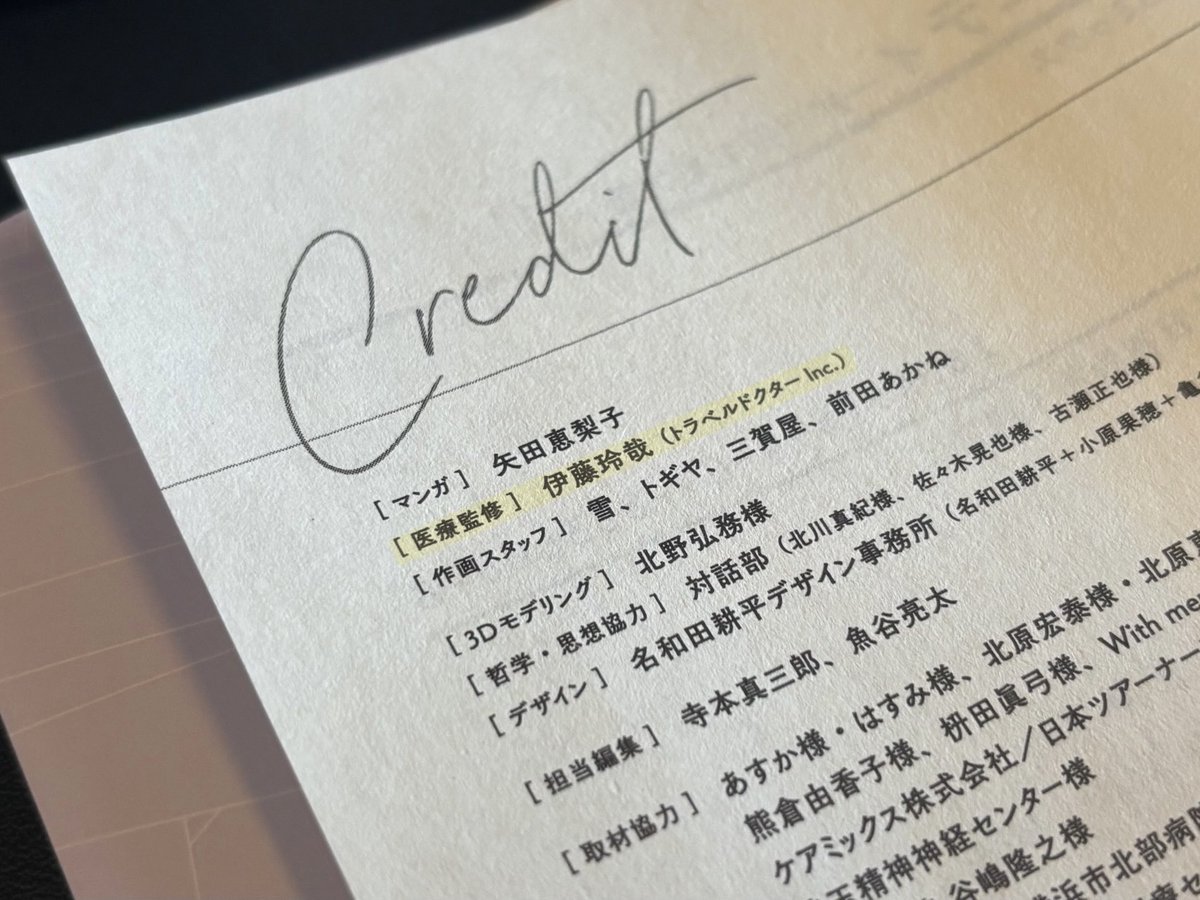 Credit
[マンガ] 矢田恵梨子
[医療監修] 伊藤玲哉（トラベルドクター Inc.）
[作画スタッフ] 雪、トギヤ、三賀屋、前田あかね
[3Dモデリング] 北野弘務様
[哲学・思想協力] 対話部（北川真紀様、佐々木晃也様、古瀬正也様）
[デザイン] 名和田耕平デザイン事務所（名和田耕平＋小原果穂＋亀
[担当編集] 寺本真三郎、魚谷亮太
[取材協力] あすか様・はすみ様、北原宏泰様・北原
熊倉由香子様、枡田眞弓様、With me
ケアミックス株式会社／日本ツアーナー
精神神経センター様
谷嶋隆之様
浜市北部病院